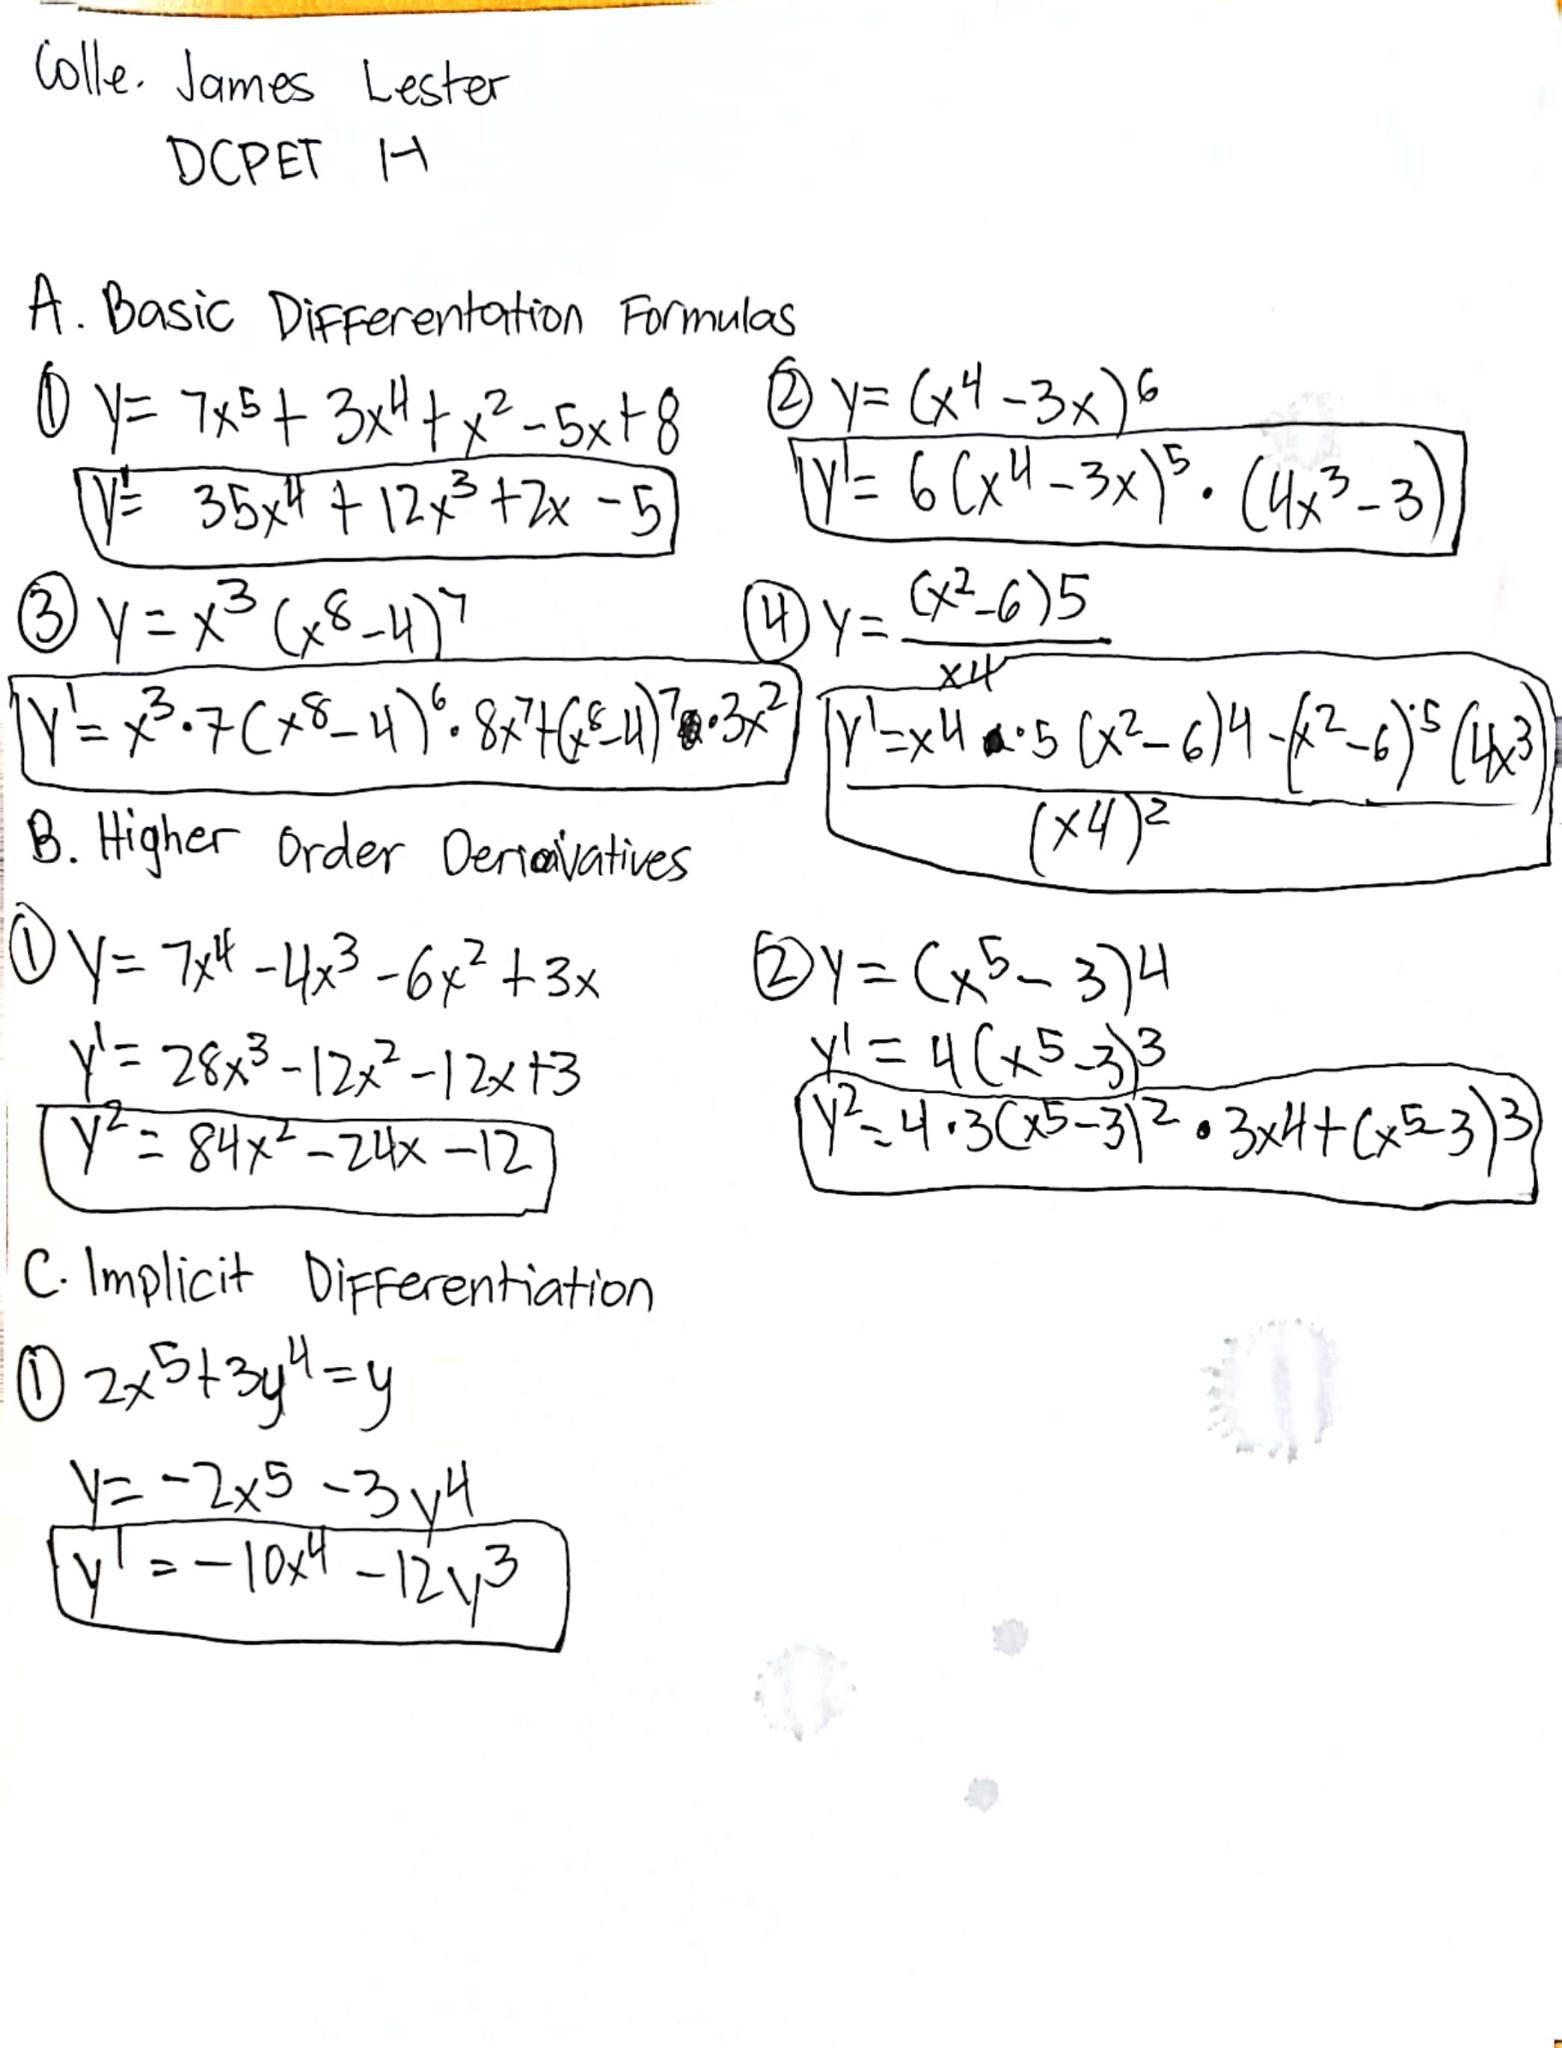 Colle. James Lester
DCPET 1-1
A. Basic Differentation Formulas
① y = 7x⁵ + 3x⁴ + x² - 5x + 8
y' = 35x⁴ + 12x³ + 2x - 5
② y = (x⁴ - 3x)⁶
y' = 6(x⁴ - 3x)⁵ · (4x³ - 3)
③ y = x³(x⁸ - 4)⁷
y' = x³ · 7(x⁸ - 4)⁶ · 8x⁷ + (x⁸ - 4)⁷ · 3x²
④ y = (x² - 6)5
x4
y' = x4 · 5(x² - 6)4 - (x² - 6)·⁵ (4x³)
(x4)²
B. Higher Order Derivatives
① y = 7x⁴ - 4x³ - 6x² + 3x
y' = 28x³ - 12x² - 12x + 3
y² = 84x² - 24x - 12
② y = (x⁵ - 3)4
y' = 4(x⁵ - 3)3
y² = 4 · 3(x5 - 3)² · 3x4 + (x⁵ - 3)3
C. Implicit Differentiation
① 2x⁵ + 3y⁴ = y
y = -2x5 - 3y4
y' = -10x⁴ - 12y³